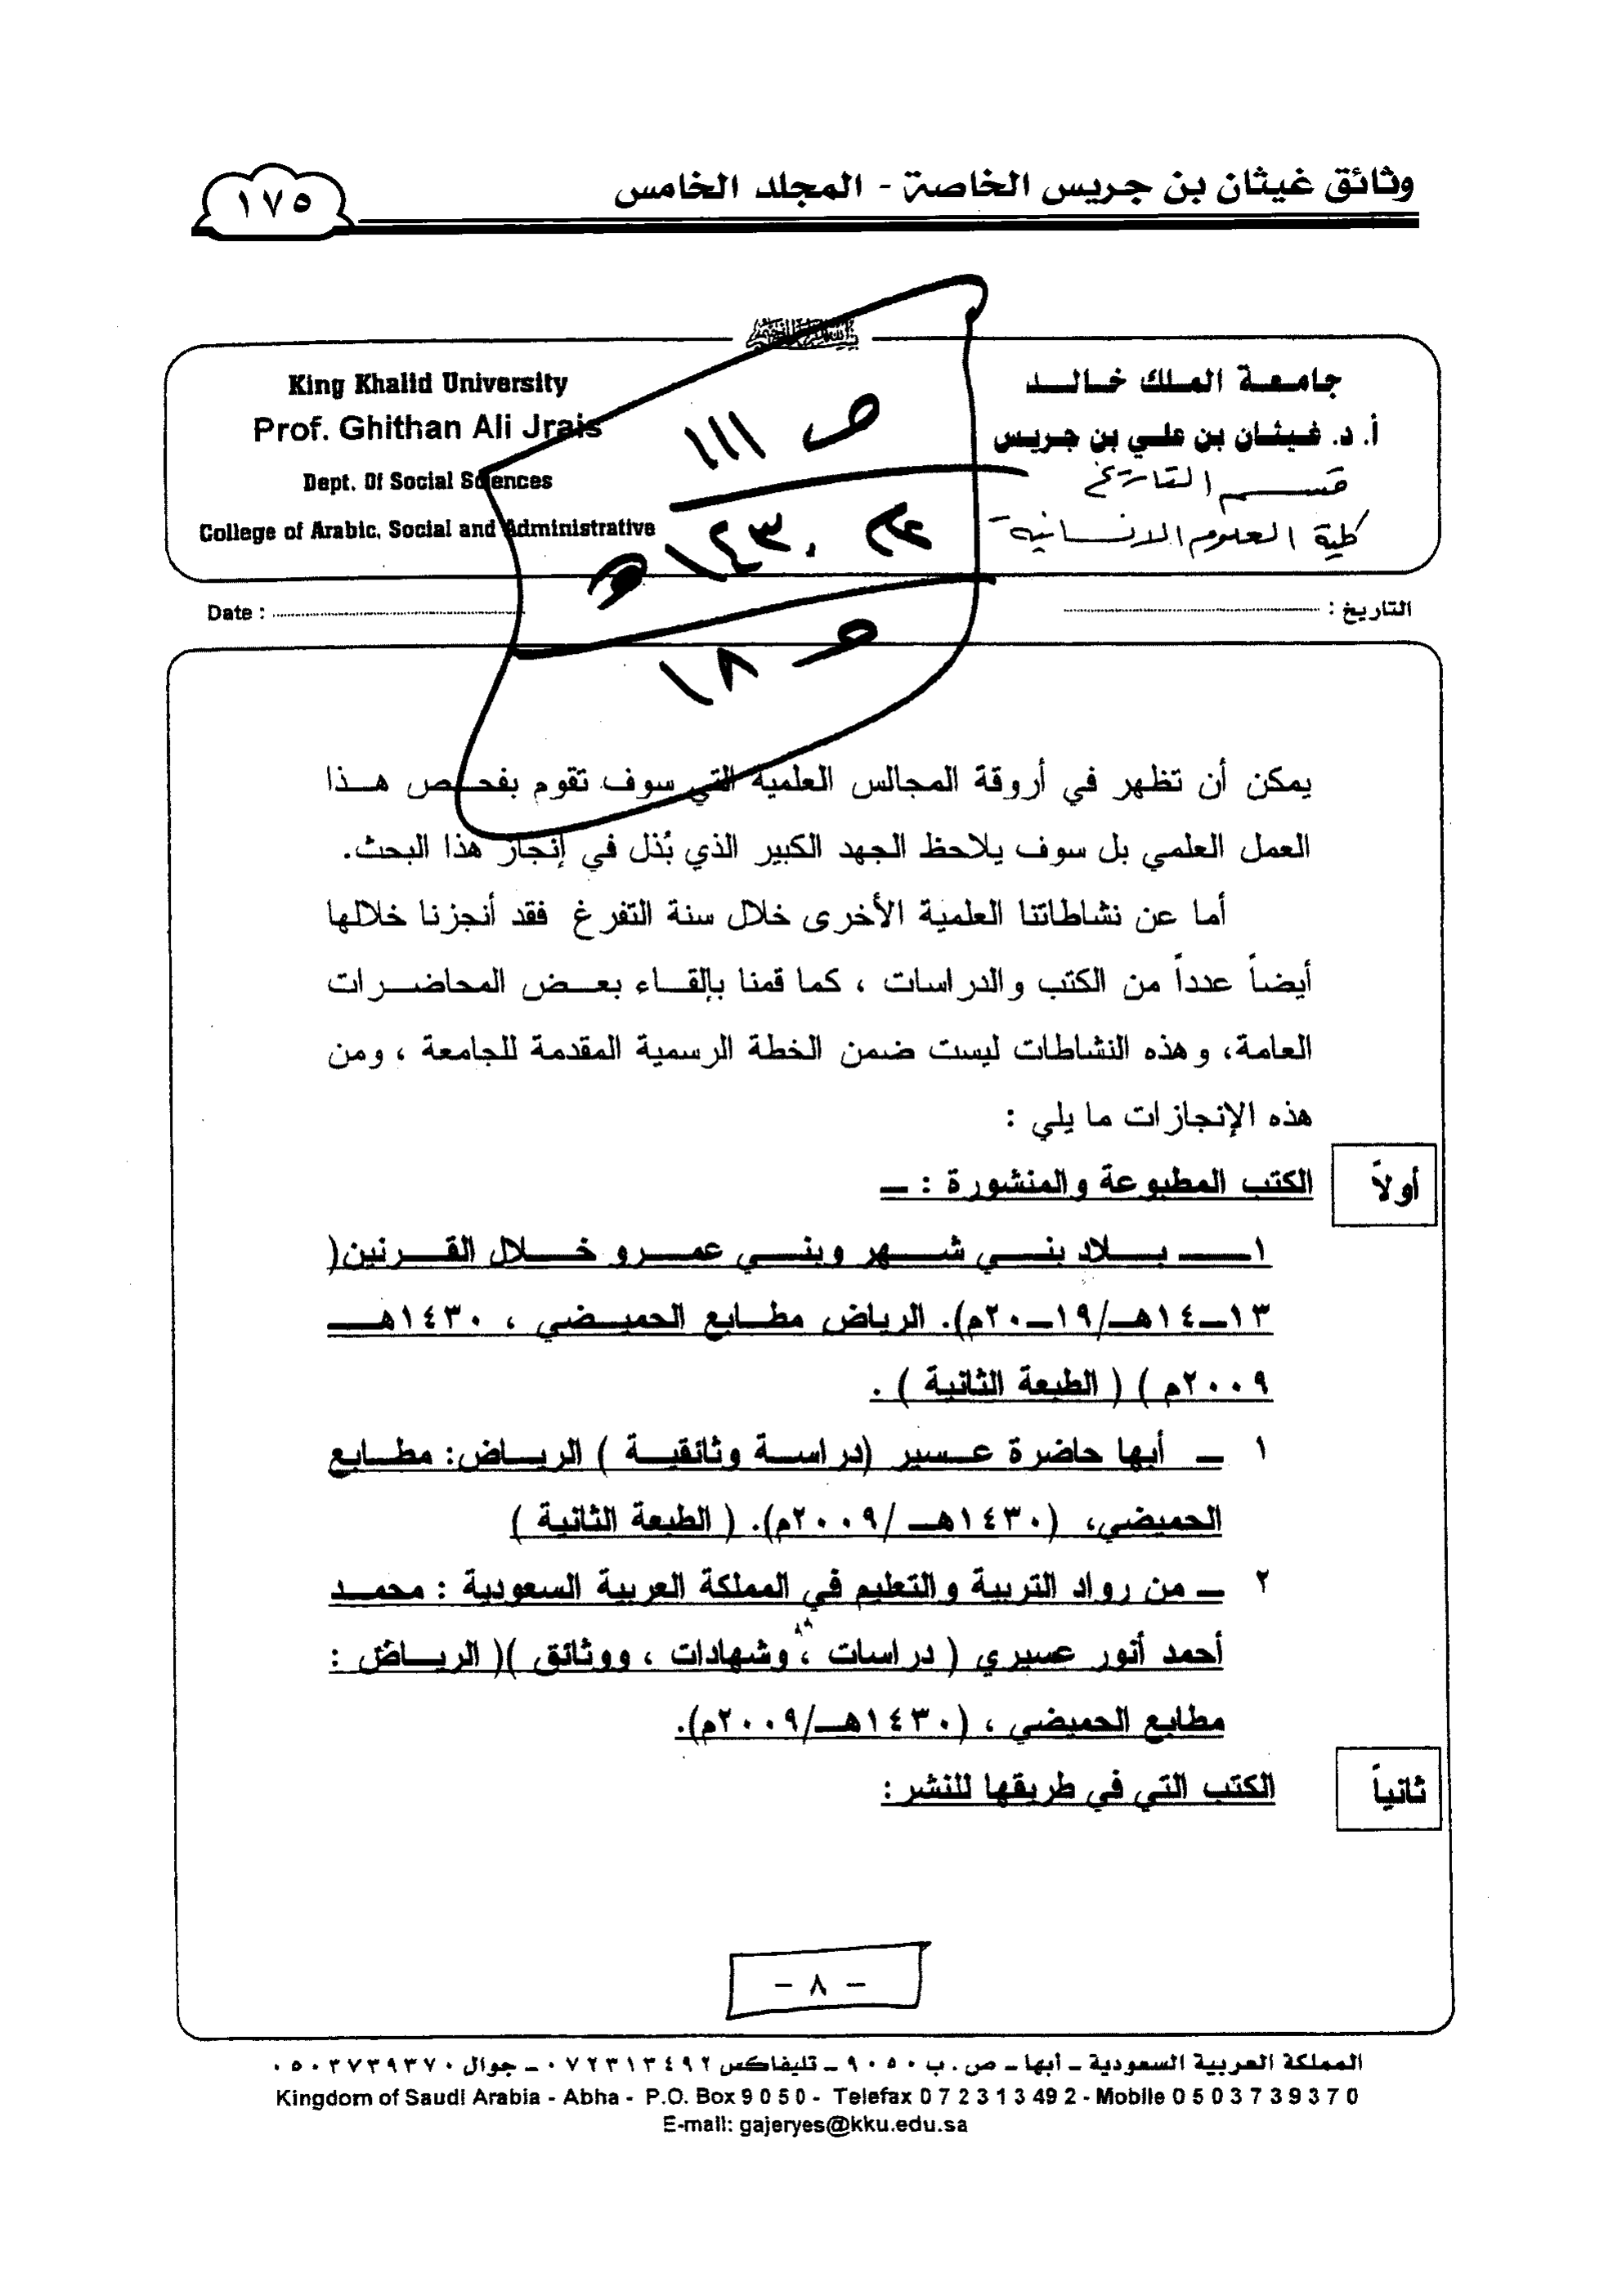 وثائق غيثان بن جريس الخاصة - المجلد الخامس
١٧٥
بسم الله الرحمن الرحيم
King Khalid University
Prof. Ghithan Ali Jrais
Dept. Of Social Sciences
College of Arabic, Social and Administrative
جامعة الملك خالد
أ. د. غيثان بن علي بن جريس
قسم التاريخ
كلية العلوم الانسانية
ص ١١١
١٤٣٠هـ
ص ١٨
Date :
التاريخ :
يمكن أن تظهر في أروقة المجالس العلمية التي سوف تقوم بفحص هذا
العمل العلمي بل سوف يلاحظ الجهد الكبير الذي بُذل في إنجاز هذا البحث.
أما عن نشاطاتنا العلمية الأخرى خلال سنة التفرغ فقد أنجزنا خلالها
أيضاً عدداً من الكتب والدراسات ، كما قمنا بإلقاء بعض المحاضرات
العامة، وهذه النشاطات ليست ضمن الخطة الرسمية المقدمة للجامعة ، ومن
هذه الإنجازات ما يلي :
أولاً الكتب المطبوعة والمنشورة : ــ
١ــ بلاد بني شهر وبني عمرو خلال القرنين(
١٣ــ١٤هـ/١٩ــ٢٠م). الرياض مطابع الحميضي ، ١٤٣٠هــ
٢٠٠٩م ) ( الطبعة الثانية ) .
١ ــ أبها حاضرة عسير (دراسة وثائقية ) الرياض: مطابع
الحميضي، (١٤٣٠هـ /٢٠٠٩م). ( الطبعة الثانية )
٢ ــ من رواد التربية والتعليم في المملكة العربية السعودية : محمد
أحمد أنور عسيري ( دراسات ، وشهادات ، ووثائق )( الرياض :
مطابع الحميضي ، (١٤٣٠هـ/٢٠٠٩م).
ثانياً الكتب التي في طريقها للنشر:
- ٨ -
المملكة العربية السعودية ــ أبها ــ ص . ب ٩٠٥٠ ــ تليفاكس ٠٧٢٣١٣٤٩٢ ــ جوال ٠٥٠٣٧٣٩٣٧٠
Kingdom of Saudi Arabia - Abha - P.O. Box 9 0 5 0 - Telefax 0 7 2 3 1 3 49 2 - Mobile 0 5 0 3 7 3 9 3 7 0
E-mail: gajeryes@kku.edu.sa